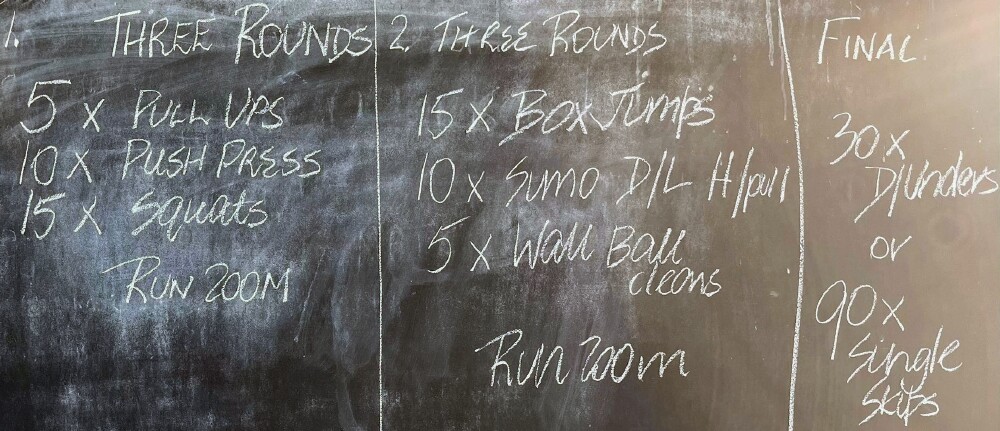 1. THREE ROUNDS
5 x PULL UPS
10 x PUSH PRESS
15 x Squats
RUN 200M
2. THREE ROUNDS
15 x Box Jumps
10 x Sumo D/L H/pull
5 x Wall Ball
cleans
Run 200m
FINAL:
30x
D/unders
or
90x
Single
Skips